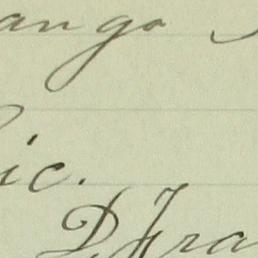 ango
ic.
D. Fra